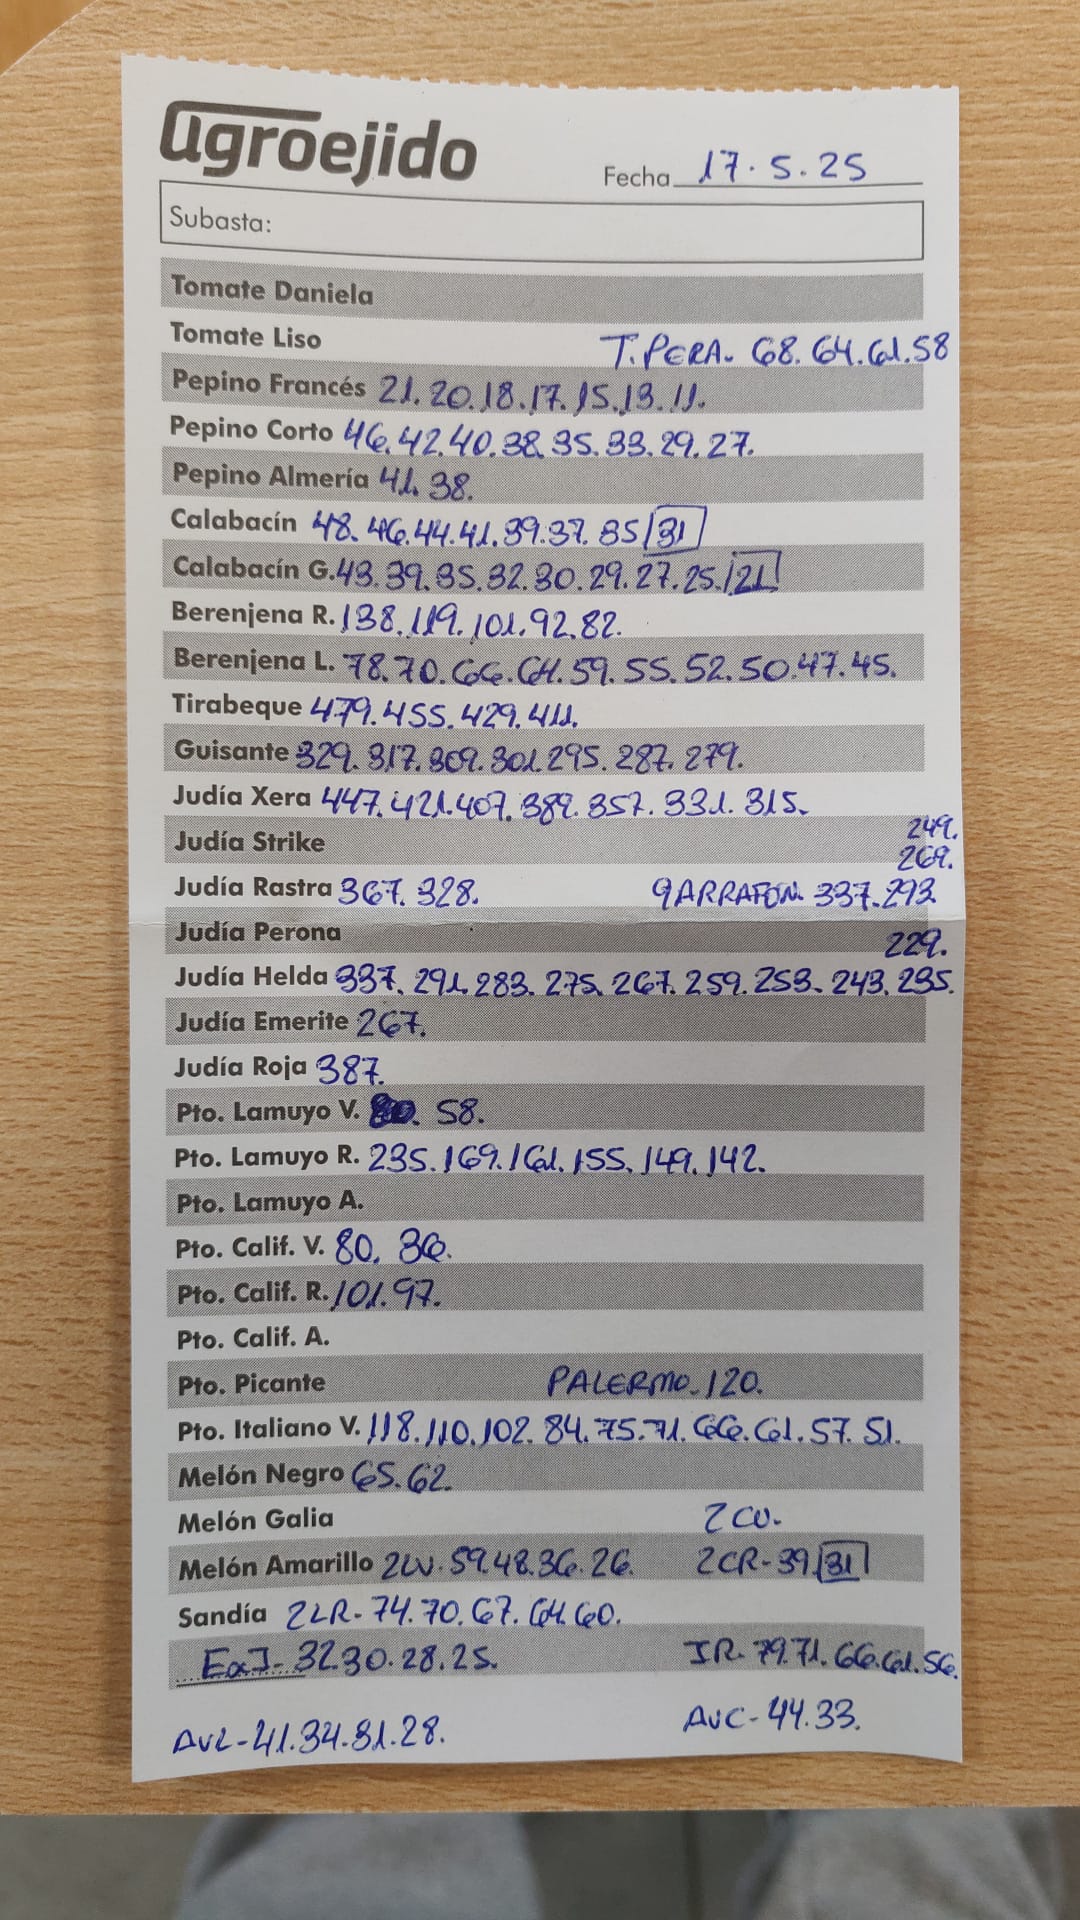 agroejido
Fecha 17.5.25
Subasta:
Tomate Daniela
Tomate Liso T.PERA- 68.64.61.58
Pepino Francés 21.20.18.17.15.13.11.
Pepino Corto 46.42.40.38.35.33.29.27.
Pepino Almería 41.38.
Calabacín 48.46.44.41.39.37.35/31
Calabacín G. 43.39.35.32.30.29.27.25./21
Berenjena R. 138.119.101.92.82.
Berenjena L. 78.70.66.64.59.55.52.50.47.45.
Tirabeque 479.455.429.411.
Guisante 329.317.309.301.295.287.279.
Judía Xera 447.421.407.389.357.331.315.
249.
Judía Strike 269.
Judía Rastra 367.328. GARRAFON 337.293
Judía Perona 229.
Judía Helda 337.291.283.275.267.259.253.243.235.
Judía Emerite 267.
Judía Roja 387.
Pto. Lamuyo V. 58.
Pto. Lamuyo R. 235.169.161.155.149.142.
Pto. Lamuyo A.
Pto. Calif. V. 80.36.
Pto. Calif. R. 101.97.
Pto. Calif. A.
Pto. Picante PALERMO-120.
Pto. Italiano V. 118.110.102.84.75.71.66.61.57.51.
Melón Negro 65.62.
Melón Galia
Melón Amarillo 59.48.36.26. 2CR-39./31
Sandía 2LR-74.70.67.64.60.
32.30.28.25. IR-79.71.66.61.56.
AVL-41.34.31.28. AVC-44.33.